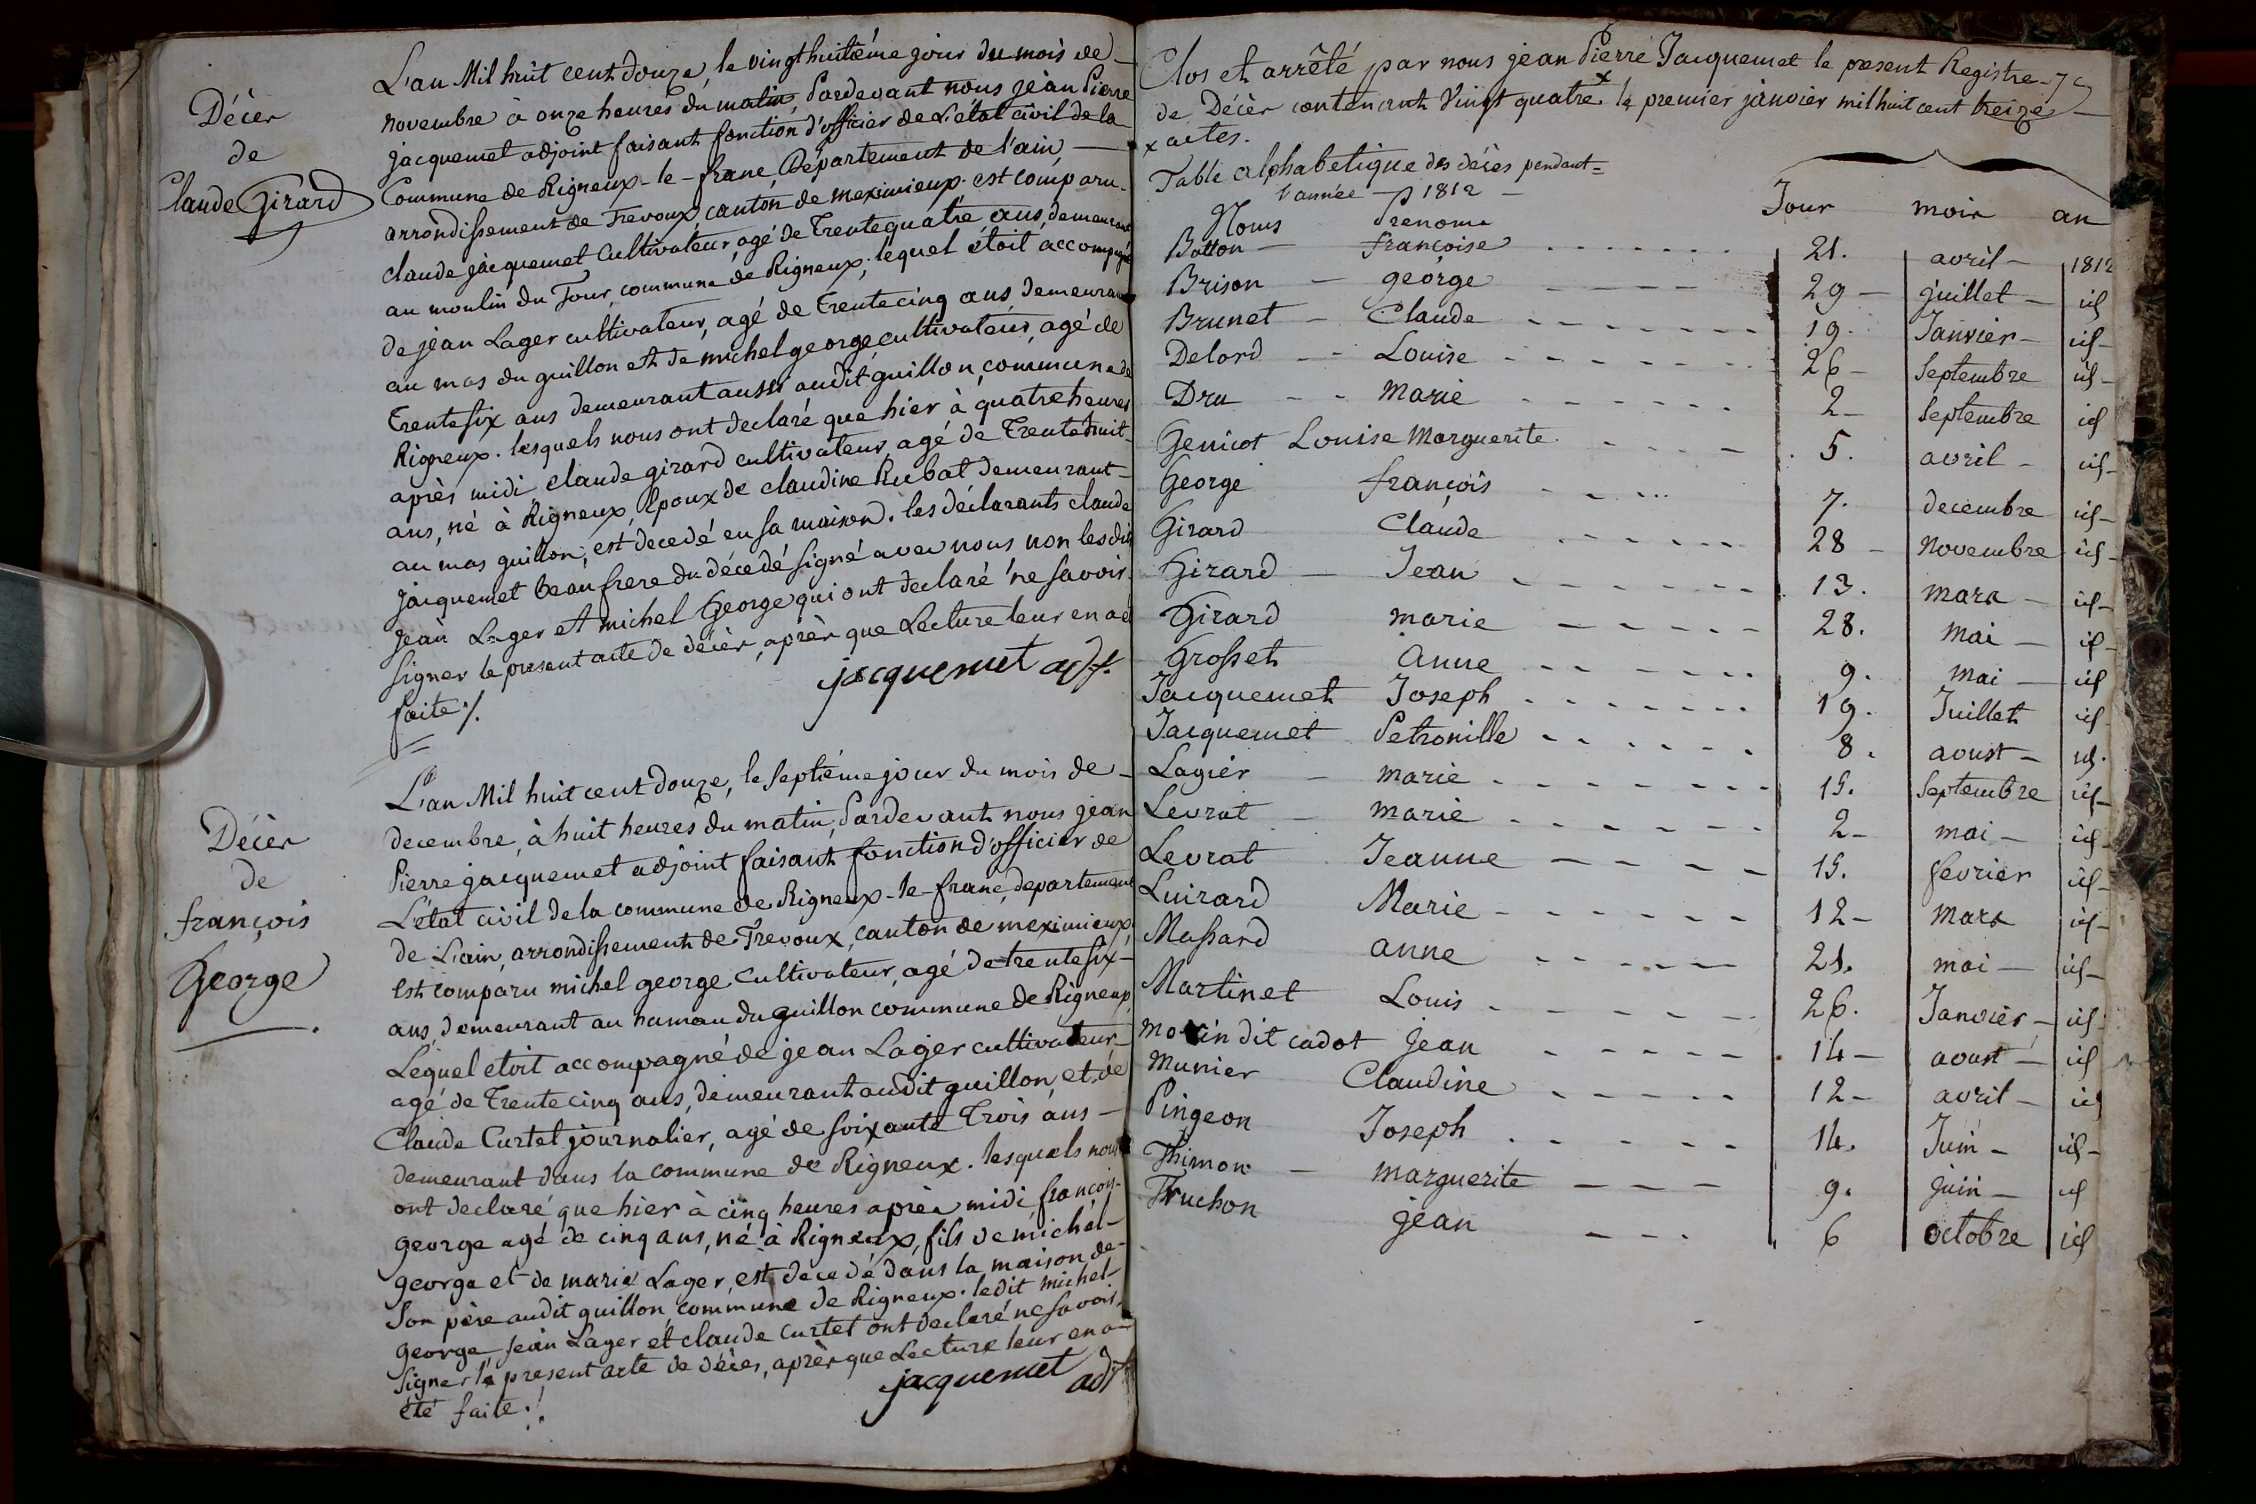 Décès
de
Claude Girard
L'an Mil huit cent douze, le vingt huitième jour du mois de
novembre à onze heures du matin, Pardevant nous jean Pierre
jacquemet adjoint faisant fonction d'officier de L'état civil de la
Commune de Rigneux-le-franc, Département de l'ain,
arrondissement de Trevoux canton de meximieux. est comparu
claude jacquemet Cultivateur, agé de Trente quatre ans, demeurant
au moulin du Tour, commune de Rigneux; lequel étoit accompagné
de jean Lager cultivateur, agé de Trente cinq ans demeurant
au mas du guillon et de michel george cultivateur, agé de
Trente six ans demeurant aussi audit guillon, commune de
Rigneux. lesquels nous ont declaré que hier à quatre heures
après midi claude girard cultivateur, agé de Trente huit
ans, né à Rigneux, Epoux de claudine Rubat demeurant
au mas guillon, est decedé en sa maison. les déclarants claude
jacquemet beaufrere du décédé signé avec nous non lesdits
jean Lager et michel George qui ont declaré ne savoir
signer le present acte de décès, après que Lecture leur en a été
faite ./.
jacquemet adjt.
Décès
de
françois
George
L'an Mil huit cent douze, le septième jour du mois de
decembre, à huit heures du matin, Pardevant nous jean
Pierre jacquemet adjoint faisant fonction d'officier de
L'état civil de la commune de Rigneux-le-franc, departement
de L'ain, arrondissement de Trevoux, canton de meximieux,
est comparu michel george cultivateur, agé de trente six
ans, demeurant au hameau du guillon commune de Rigneux,
Lequel etoit accompagné de jean Lager cultivateur
agé de Trente cinq ans, demeurant audit guillon, et de
Claude Curtet journalier, agé de soixante Trois ans
demeurant dans la commune de Rigneux. lesquels nous
ont declaré que hier à cinq heures après midi françois
george agé de cinq ans, né à Rigneux, fils de michel
george et de marie Lager, est decedé dans la maison de
son père audit guillon, commune de Rigneux. ledit michel
george, jean Lager et claude curtet ont declaré ne savoir
signer le present acte de décès, après que Lecture leur en a
été faite ./.
jacquemet adjt
Clos et arrêté par nous jean Pierre Jacquemet le present Registre
de Décès contenant Vingt quatre x le premier janvier mil huit cent treize
x actes.
Table alphabetique des décès pendant
l'année 1812
Noms Prenoms Jour mois an
Botton françoise 21. avril 1812
Brison george 29 juillet id
Brunet Claude 19. Janvier id
Delord Louise 26 septembre id
Dru Marie 2 septembre id
Genicot Louise Marguerite 5. avril id
George françois 7. decembre id
Girard Claude 28 novembre id
Girard Jean 13. mars id
Girard marie 28. mai id
Grosset anne 9. mai id
Jacquemet Joseph 19. Juillet id
Jacquemet Petronille 8. aoust id.
Lagier marie 15. septembre id
Levrat marie 2 mai id
Levrat Jeanne 15. fevrier id
Luizard Marie 12 mars id
Massard anne 21. mai id
Martinet Louis 26. Janvier id
morin dit cadot jean 14 aoust id
munier Claudine 12 avril id
Pingeon Joseph 14. Juin id
Thimon marguerite 9. juin id
Truchon jean 6 octobre id